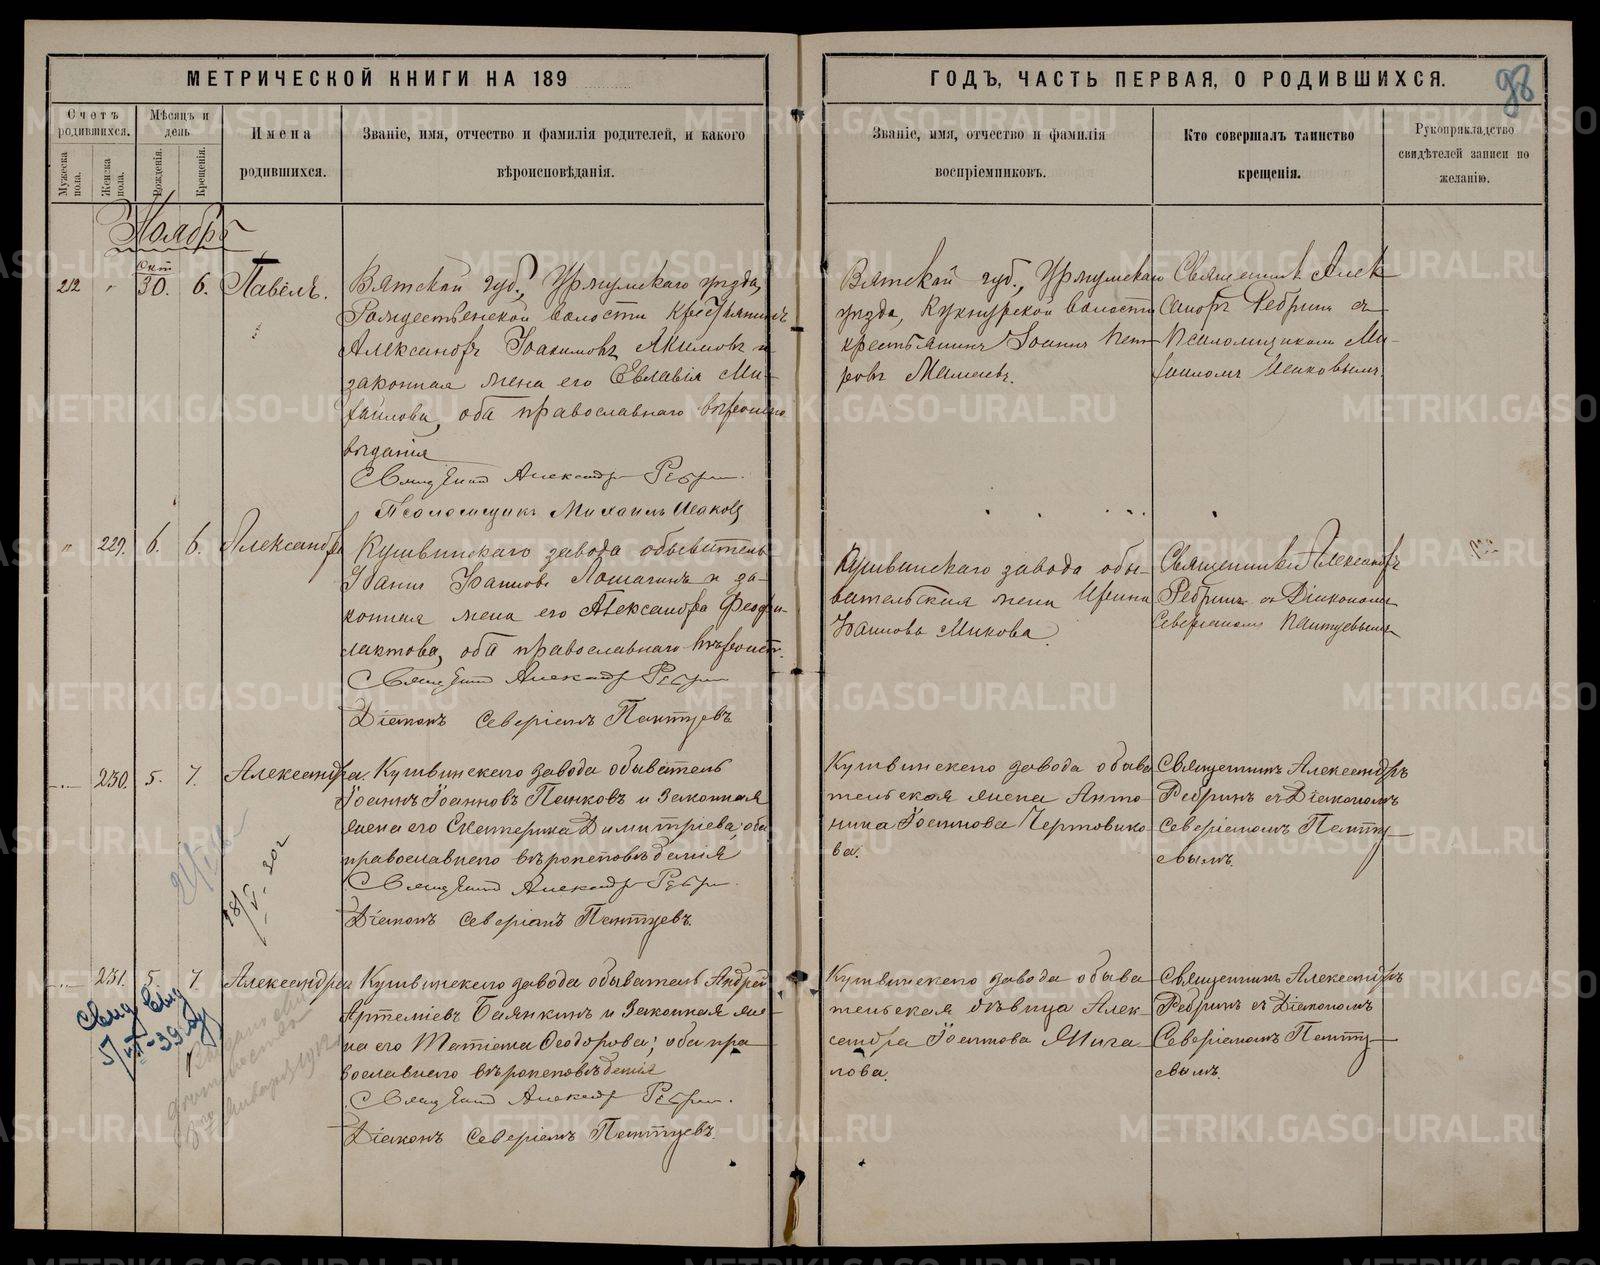 МЕТРИЧЕСКОЙ КНИГИ НА 189
ГОДЪ, ЧАСТЬ ПЕРВАЯ, О РОДИВШИХСЯ.
98
Счетъ родившихся.
Мужеска пола.
Женска пола.
Мѣсяцъ и день
Рожденія.
Крещенія.
Имена родившихся.
Званіе, имя, отчество и фамилія родителей, и какого
вѣроисповѣданія.
Званіе, имя, отчество и фамилія
воспріемниковъ.
Кто совершалъ таинство
крещенія.
Рукоприкладство
свидѣтелей записи по
желанію.
Ноябрь
Окт
212 " 30. 6. Павелъ.
Вятской губ., Уржумскаго уѣзда,
Рождественской волости крестьянинъ
Александръ Іоакимовъ Акимовъ и
законная жена его Евлавія Ми-
хаилова, оба православнаго вѣроиспо
вѣданія
Священникъ Александръ Ребринъ.
Псаломщикъ Михаилъ Исаковъ
Вятской губ., Уржумскаго
уѣзда, Кукнурской волости
крестьянинъ Іоаннъ Пет
ровъ
Священникъ Алек
сандръ Ребринъ съ
псаломщикомъ Ми-
хаиломъ Исаковымъ.
" 229. 6. 6. Александра
Кушвинскаго завода обыватель
Іоаннъ Іоанновъ Лошагинъ и за-
конная жена его Александра Феофи-
лактова, оба православнаго вѣроисп.
Священникъ Александръ Ребринъ
Діаконъ Северіанъ Пантуевъ
Кушвинскаго завода обы-
вательская жена Ирина
Іоаннова Микова
Священникъ Александръ
Ребринъ съ Діакономъ
Северіаномъ Пантуевымъ
230. 5. 7. Александра.
Кушвинскаго завода обыватель
Іоаннъ Іоанновъ Пенковъ и Законная
жена его Екатерина Димитріева; оба
православнаго вѣроисповѣданія
Священникъ Александръ Ребринъ.
Діаконъ Северіанъ Пантуевъ.
Кушвинскаго завода обыва
тельская жена Анто-
нина Іоаннова Чертовико
ва.
Священникъ Александръ
Ребринъ съ Діакономъ
Северіаномъ Панту
евымъ.
231. 5. 7. Александра
Кушвинскаго завода обыватель Андрей
Артеміевъ Баянкинъ и Законная же-
на его Татіана Ѳеодорова; оба пра
вославнаго вѣроисповѣданія
Священникъ Александръ Ребринъ.
Діаконъ Северіанъ Пантуевъ.
Кушвинскаго завода обыва
тельская дѣвица Алек-
сандра Іоаннова Мига
лова.
Священникъ Александръ
Ребринъ съ Діакономъ
Северіаномъ Панту
евымъ.
METRIKI.GASO-URAL.RU